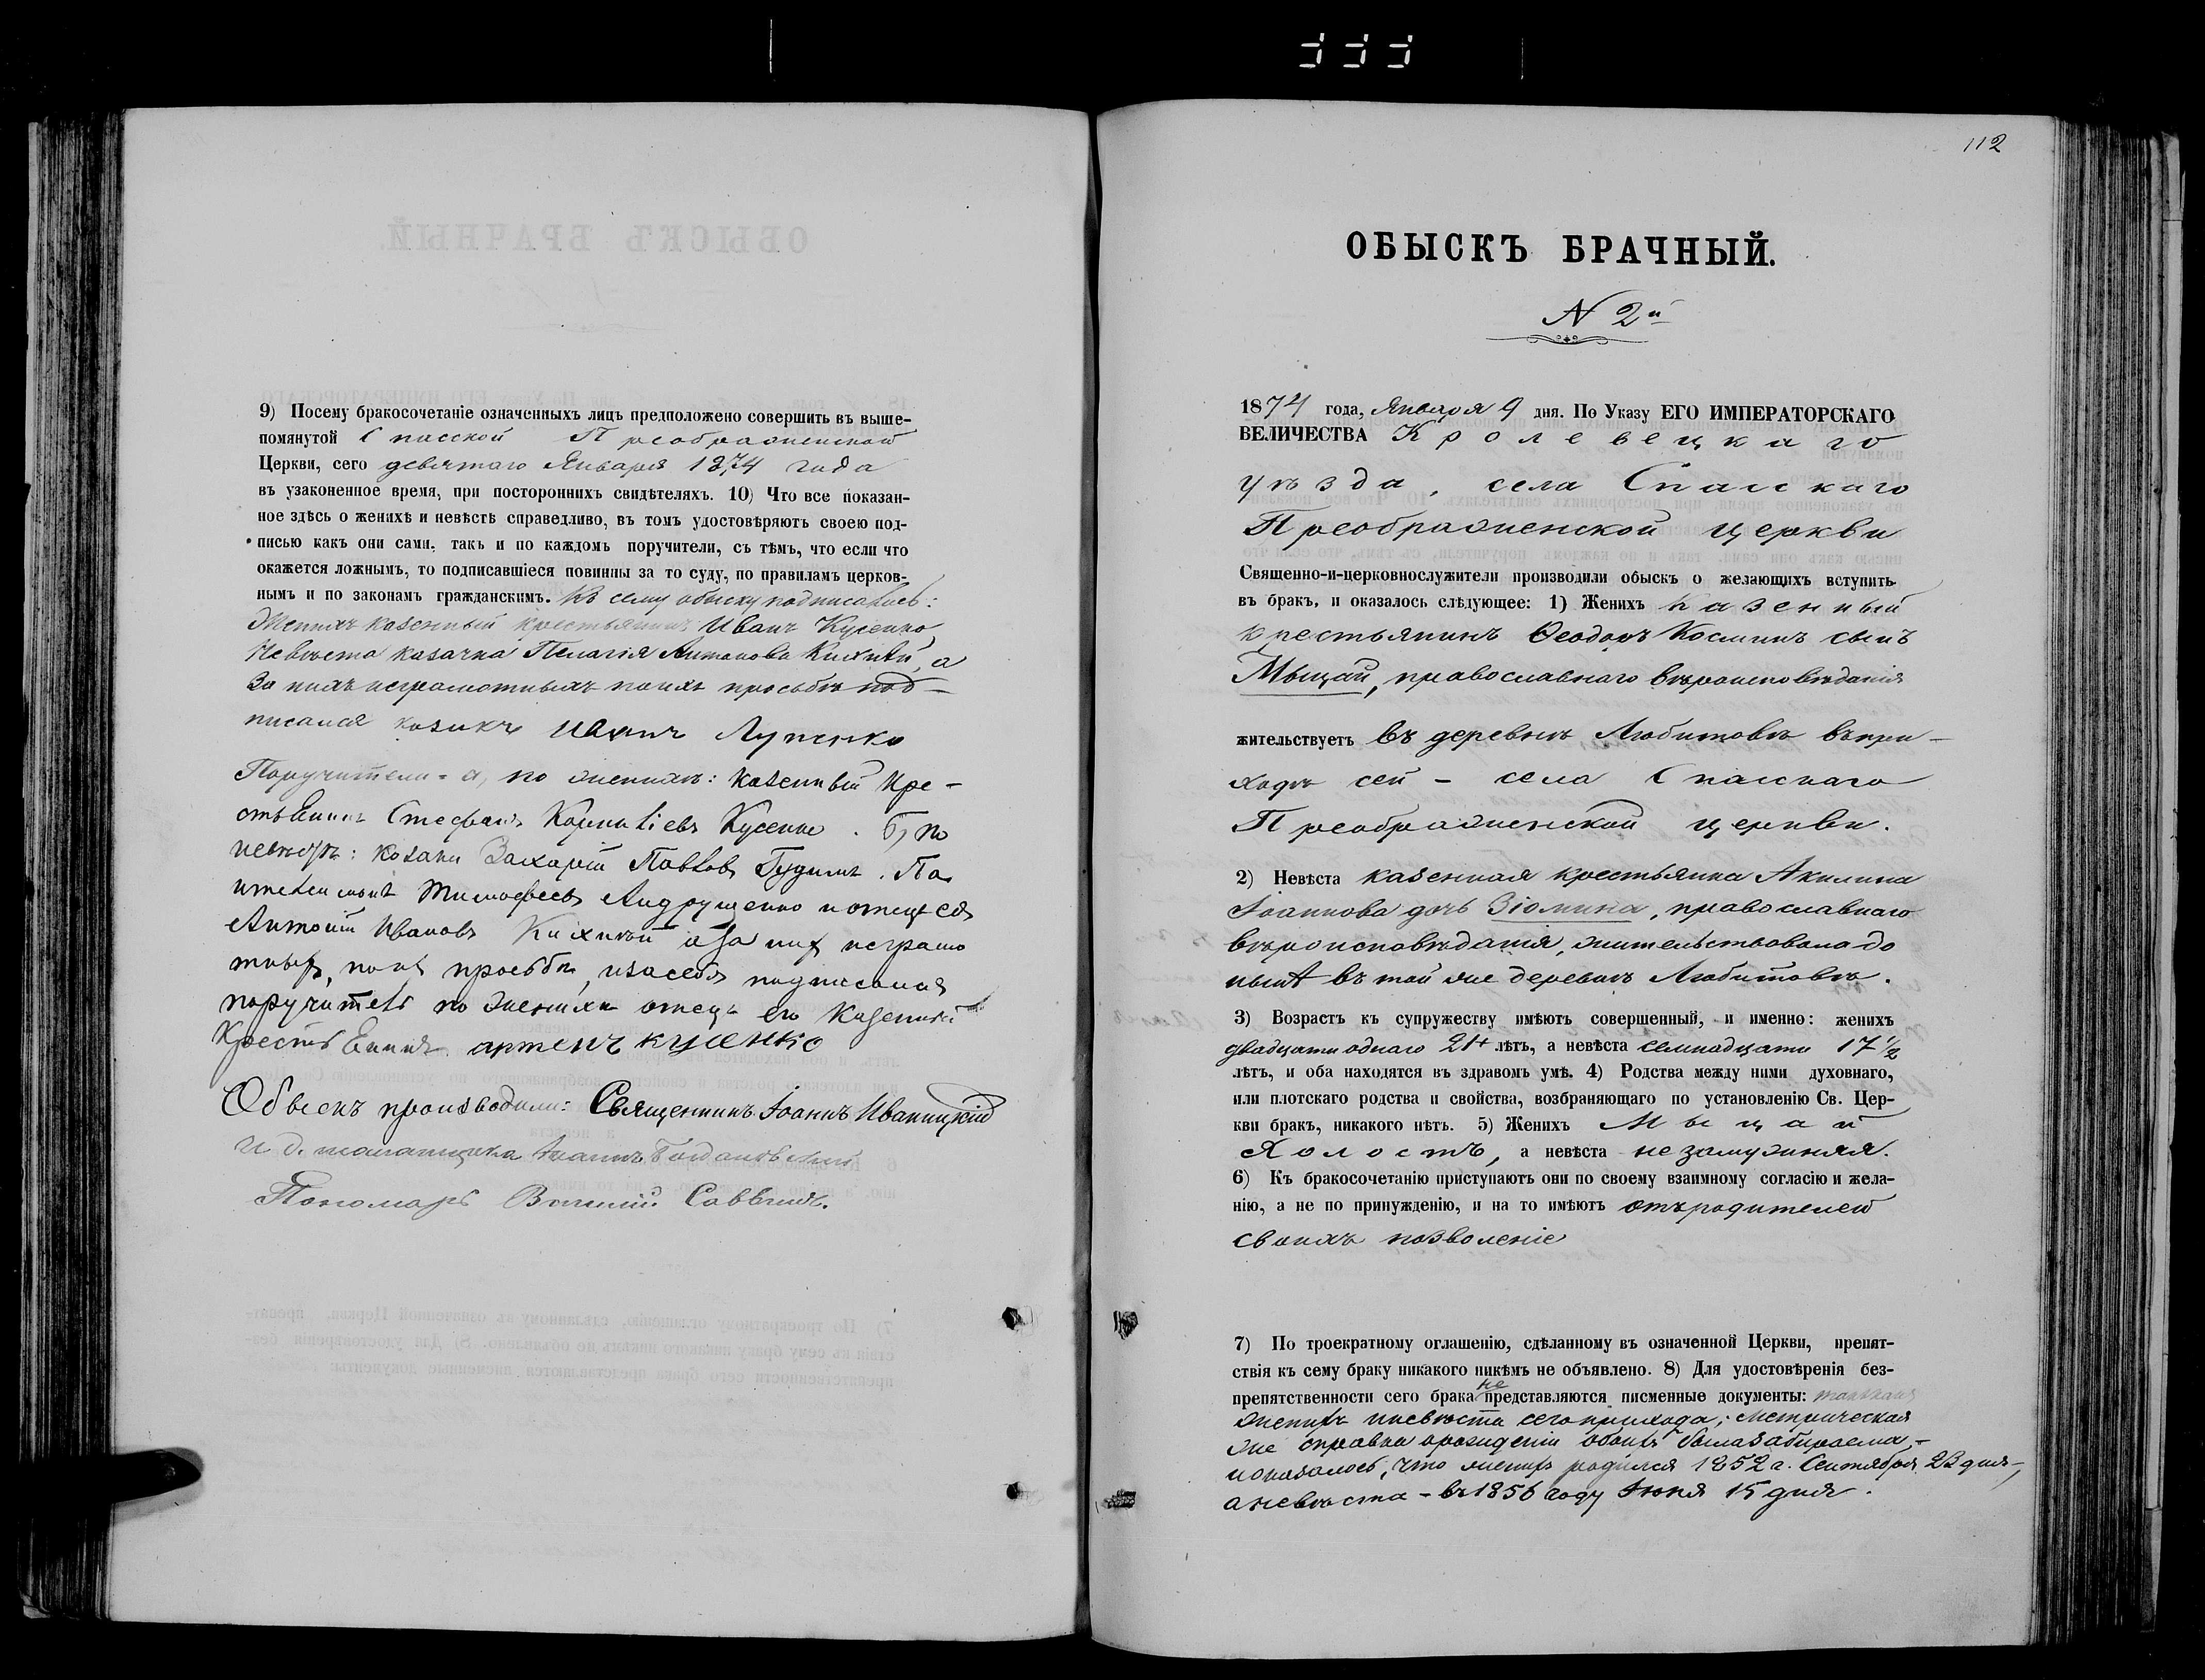 9) Посему бракосочетаніе означенныхъ лицъ предположено совершить въ выше-
помянутой Спасской Преображенской
Церкви, сего девятаго Января 1874 года
въ узаконенное время, при постороннихъ свидѣтеляхъ. 10) Что все показан-
ное здѣсь о женихѣ и невѣстѣ справедливо, въ томъ удостовѣряютъ своею под-
писью какъ они сами, такъ и по каждомъ поручители, съ тѣмъ, что если что
окажется ложнымъ, то подписавшіеся повинны за то суду, по правиламъ церков-
нымъ и по законамъ гражданскимъ. Къ сему обыску подписались:
Женихъ казенный крестьянинъ Иванъ Кусенко,
Невѣста казачка Пелагія Антонова Кихтѣй, а
за нихъ неграмотныхъ поихъ просьбѣ под-
писался козакъ Иванъ Лупенко
Поручители - а, по женихѣ: казенный кре-
стьянинъ Стефанъ Корниліевъ Кусенко. б, по
невѣстѣ: козаки Захарій Павловъ Гудимъ.
Тимофеевъ Андрущенко и отецъ ея
Антоній Ивановъ а за них неграмо
тных, поих просьбы, изасебя подписался
поручитель по женихѣ отецъ его Казенный
Крестьянинъ артемъ кусенко
Обыскъ производили: Священникъ Іоаннъ Иваницкій
И. д. псаломщика Іоаннъ
Пономарь Саввинъ.
112
ОБЫСКЪ БРАЧНЫЙ.
N 2й
1874 года, Января 9 дня. По Указу ЕГО ИМПЕРАТОРСКАГО
ВЕЛИЧЕСТВА Кролевецкаго
уѣзда, села Спасскаго
Преображенской церкви
Священно-и-церковнослужители производили обыскъ о желающихъ вступить
въ бракъ, и оказалось слѣдующее: 1) Женихъ казенный
крестьянинъ Ѳеодоръ Косминъ сынъ
Мыцай, православнаго вѣроисповѣданія
жительствуетъ въ деревнѣ Любитовкѣ въ при-
ходѣ сей - села Спасскаго
Преображенской церкви.
2) Невѣста казенная крестьянка Акилина
Іоаннова дочь Зіомина, православнаго
вѣроисповѣданія, жительствовала до
нынѣ въ той же деревнѣ Любитовкѣ.
3) Возрастъ къ супружеству имѣютъ совершенный, и именно: женихъ
двадцати одного 21+ лѣтъ, а невѣста семнадцати 17½
лѣтъ, и оба находятся въ здравомъ умѣ. 4) Родства между ними духовнаго,
или плотскаго родства и свойства, возбраняющаго по установленію Св. Цер-
кви бракъ, никакого нѣтъ. 5) Женихъ Мыцай
Холостъ, а невѣста незамужняя.
6) Къ бракосочетанію приступаютъ они по своему взаимному согласію и жела-
нію, а не по принужденію, и на то имѣютъ отъ родителей
своихъ позволеніе
7) По троекратному оглашенію, сдѣланному въ означенной Церкви, препят-
ствія къ сему браку никакого никѣмъ не объявлено. 8) Для удостовѣренія без-
препятственности сего брака не представляются писменные документы: такъ какъ
женихъ и невѣста сего прихода; метрическая
же справка о рожденіи обоихъ была забираема, -
и оказалось, что женихъ родился 1852 г. Сентября 23 дня,
а невѣста - въ 1856 году Іюня 15 дня.